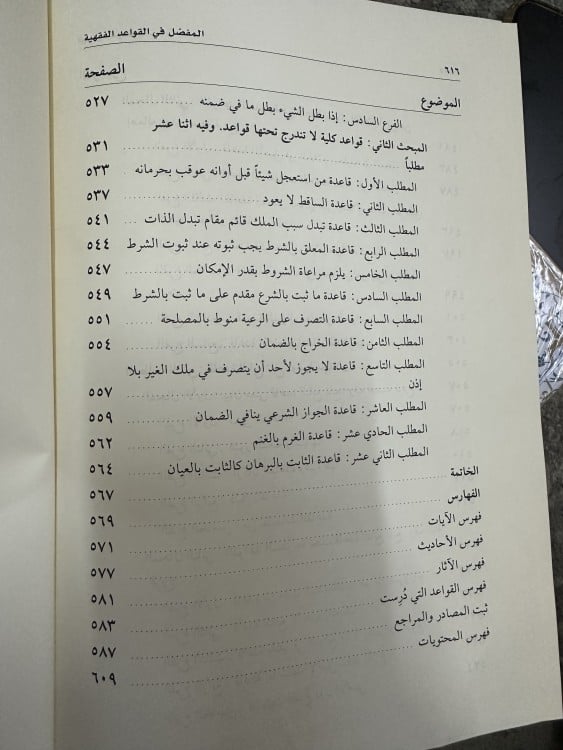 المفصل في القواعد الفقهية
٦١٦
الموضوع الصفحة
الفرع السادس: إذا بطل الشيء بطل ما في ضمنه ............ ٥٢٧
المبحث الثاني: قواعد كلية لا تندرج تحتها قواعد. وفيه اثنا عشر
مطلباً ............ ٥٣١
المطلب الأول: قاعدة من استعجل شيئاً قبل أوانه عوقب بحرمانه ٥٣٣
المطلب الثاني: قاعدة الساقط لا يعود ............ ٥٣٧
المطلب الثالث: قاعدة تبدل سبب الملك قائم مقام تبدل الذات ... ٥٤١
المطلب الرابع: قاعدة المعلق بالشرط يجب ثبوته عند ثبوت الشرط ٥٤٤
المطلب الخامس: يلزم مراعاة الشروط بقدر الإمكان ............ ٥٤٧
المطلب السادس: قاعدة ما ثبت بالشرع مقدم على ما ثبت بالشرط ٥٤٩
المطلب السابع: قاعدة التصرف على الرعية منوط بالمصلحة ...... ٥٥١
المطلب الثامن: قاعدة الخراج بالضمان ............ ٥٥٤
المطلب التاسع: قاعدة لا يجوز لأحد أن يتصرف في ملك الغير بلا
إذن ............ ٥٥٧
المطلب العاشر: قاعدة الجواز الشرعي ينافي الضمان ............ ٥٥٩
المطلب الحادي عشر: قاعدة الغرم بالغنم ............ ٥٦٢
المطلب الثاني عشر: قاعدة الثابت بالبرهان كالثابت بالعيان ............ ٥٦٤
الخاتمة ............ ٥٦٧
الفهارس ............ ٥٦٩
فهرس الآيات ............ ٥٧١
فهرس الأحاديث ............ ٥٧٧
فهرس الآثار ............ ٥٨١
فهرس القواعد التي دُرِست ............ ٥٨٣
ثبت المصادر والمراجع ............ ٥٨٧
فهرس المحتويات ............ ٦٠٩